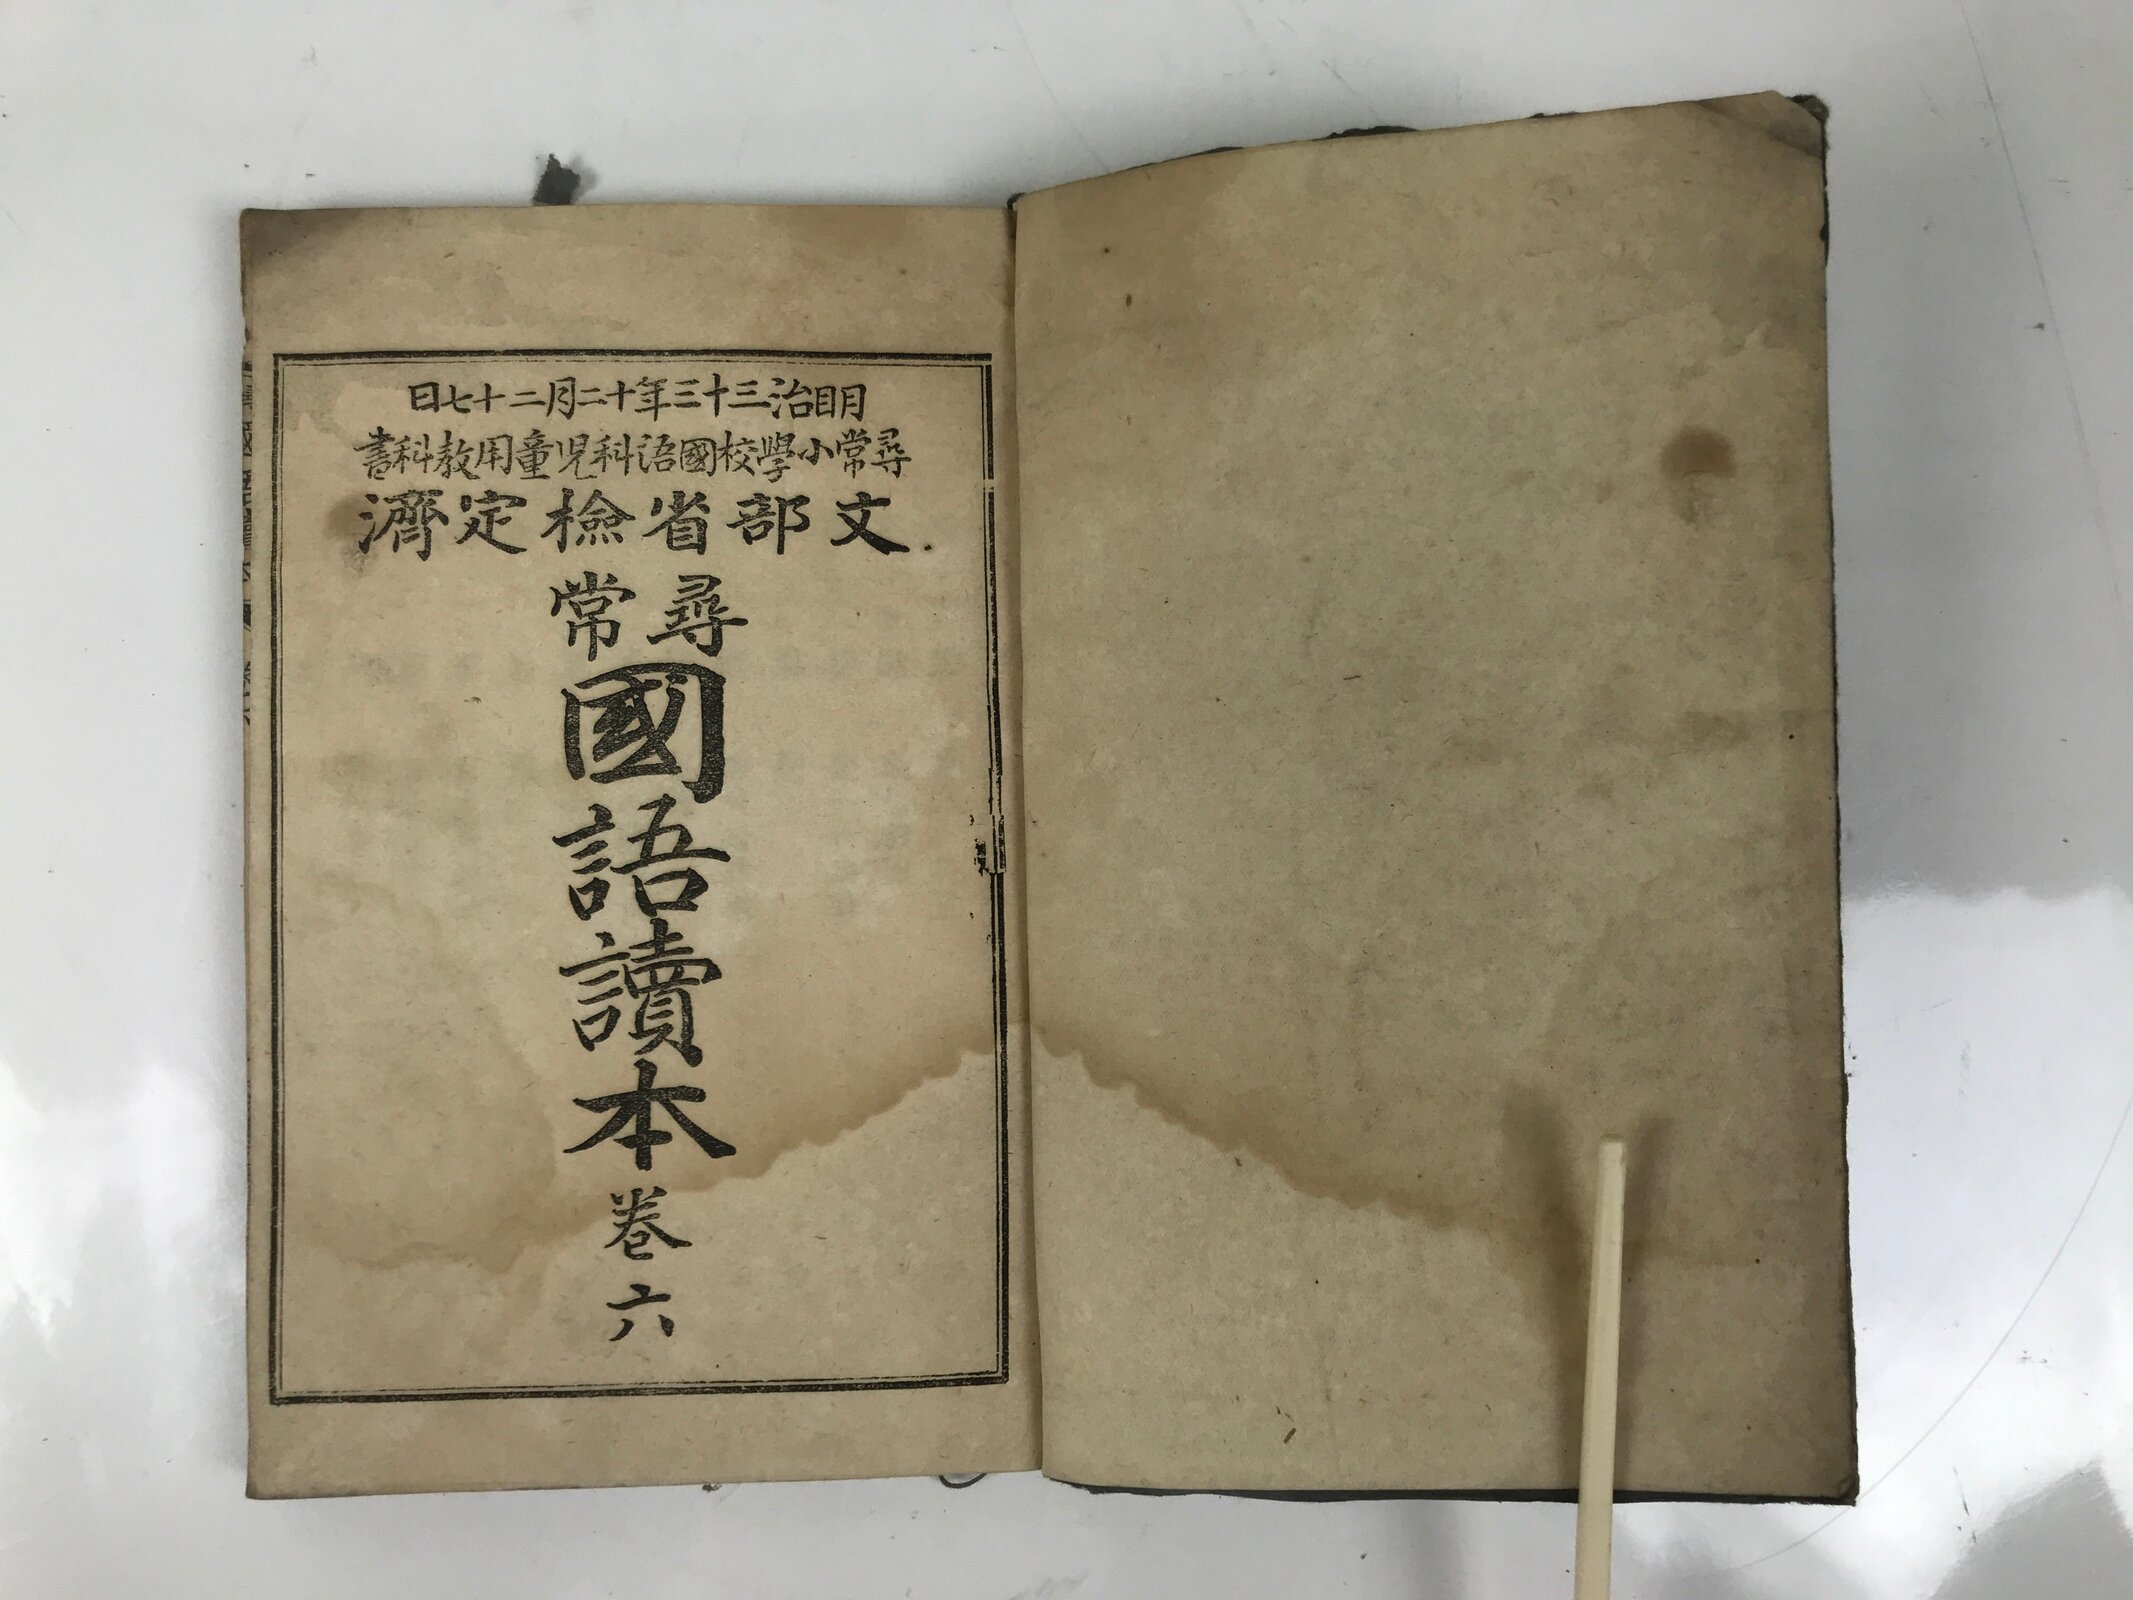 明治三十三年十二月二十七日
尋常小學校國語科兒童用教科書
文部省檢定濟
尋常
國語讀本
卷六